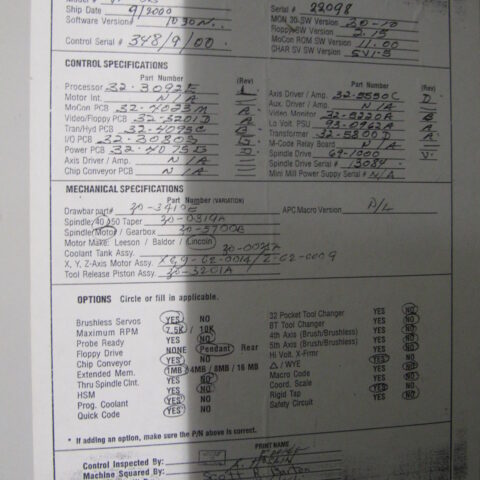 Ship Date 9/2000 Serial # 22098
Software Version 10.30N MON 30 SW Version 30-10
Floppy SW Version 2.15
Control Serial # 348/9/00 MoCon ROM SW Version 11.00
CHAR SV SW Version SV1-5
CONTROL SPECIFICATIONS
Part Number (Rev) Part Number (Rev)
Processor 32-3092E Axis Driver / Amp. 32-5550C D
Motor Int. N/A Aux. Driver / Amp. N/A
MoCon PCB 32-4023M Video Monitor 32-5220A B
Video/Floppy PCB 32-3201D Lo Volt. PSU 93-0762A
Tran/Hyd PCB 32-4095C Transformer 32-5800D
I/O PCB 32-3080 M-Code Relay Board N/A
Power PCB 32-4075D Spindle Drive 69-1000
Axis Driver / Amp. N/A Spindle Drive Serial # 13084
Chip Conveyor PCB N/A Mini Mill Power Suppy Serial # N/A
MECHANICAL SPECIFICATIONS
Part Number (VARIATION)
Drawbar part# 30-3410E APC Macro Version P/L
Spindle/ 40 /50 Taper 30-0319A
Spindle/ Motor / Gearbox 30-5700B
Motor Make: Leeson / Baldor / Lincoln
Coolant Tank Assy. 30-0025A
X, Y, Z-Axis Motor Assy.
Tool Release Piston Assy. 30-3201A
OPTIONS Circle or fill in applicable.
Brushless Servos YES NO 32 Pocket Tool Changer YES NO
Maximum RPM 7.5K / 10K BT Tool Changer YES NO
Probe Ready YES NO 4th Axis (Brush/Brushless) YES NO
Floppy Drive NONE Pendant Rear 5th Axis (Brush/Brushless) YES NO
Chip Conveyor YES NO Hi Volt. X-Frmr YES NO
Extended Mem. 1MB / 4MB / 8MB / 16 MB △ / WYE YES NO
Thru Spindle Clnt. YES NO Macro Code YES NO
HSM YES NO Coord. Scale YES NO
Prog. Coolant YES NO Rigid Tap YES NO
Quick Code YES NO Safety Circuit YES NO
* If adding an option, make sure the P/N above is correct.
PRINT NAME
Control Inspected By:
Machine Squared By: Scott R. Barton